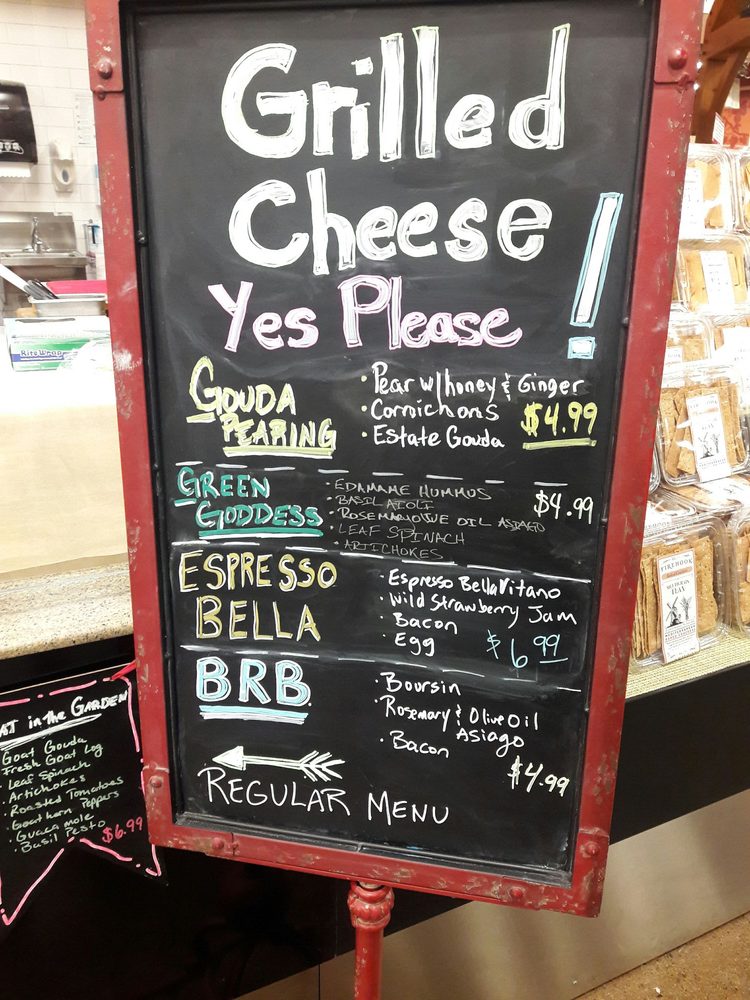 Grilled
Cheese
Yes Please!
GOUDA
PEARING
· Pear w/honey & Ginger
· Cornichons
· Estate Gouda
$4.99
GREEN
GODDESS
· EDAMAME HUMMUS
· BASIL AIOLI
· ROSEMARY OLIVE OIL ASIAGO
· LEAF SPINACH
· ARTICHOKES
$4.99
ESPRESSO
BELLA
· Espresso BellaVitano
· Wild Strawberry Jam
· Bacon
· Egg
$6.99
BRB
· Boursin
· Rosemary & Olive Oil
Asiago
· Bacon
$4.99
REGULAR MENU
in the GARDEN
Goat Gouda
Fresh Goat Log
· Leaf Spinach
· Artichokes
· Roasted Tomatoes
· Peppers
· Guacamole
· Basil Pesto
$6.99
FIREHOOK